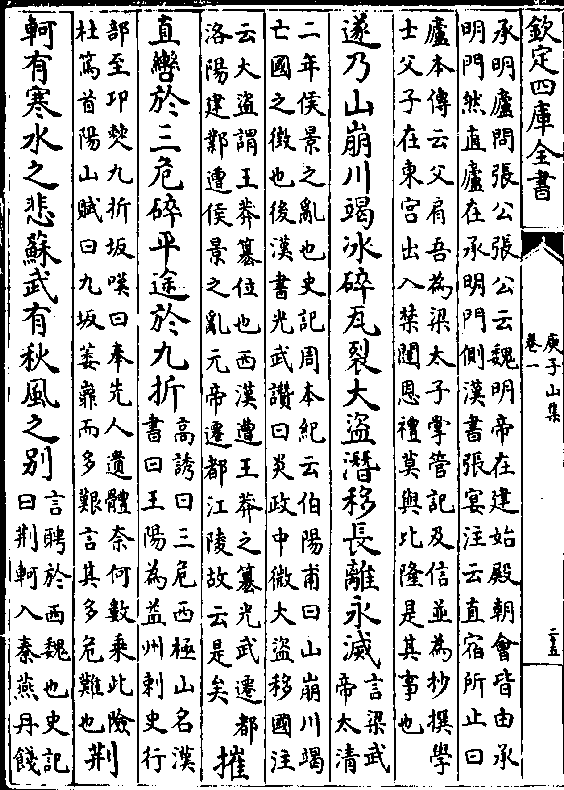 欽定四庫全書
庾子山集
卷一
二五
承明廬問張公張公云魏明帝在建始殿朝會皆由承
明門然直廬在承明門側漢書張宴注云直宿所止曰
廬本傳云父肩吾為梁太子掌管記及信並為抄撰學
士父子在東宮出入禁闥恩禮莫與比隆是其事也
遂乃山崩川竭冰碎瓦裂大盜潛移長離永滅言梁武
帝太清
二年侯景之亂也史記周本紀云伯陽甫曰山崩川竭
亡國之徵也後漢書光武讚曰炎政中微大盜移國注
云大盜謂王莽簒位也西漢遭王莽之簒光武遷都
洛陽建鄴遭侯景之亂元帝遷都江陵故云是矣
摧
直轡於三危碎平途於九折高誘曰三危西極山名漢
書曰王陽為益州刺史行
部至邛僰九折坂嘆曰奉先人遺體奈何數乘此險
杜篤首陽山賦曰九坂蔞嶵而多艱言其多危難也
荆
軻有寒水之悲蘇武有秋風之别言聘於西魏也史記
曰荆軻入秦燕丹餞